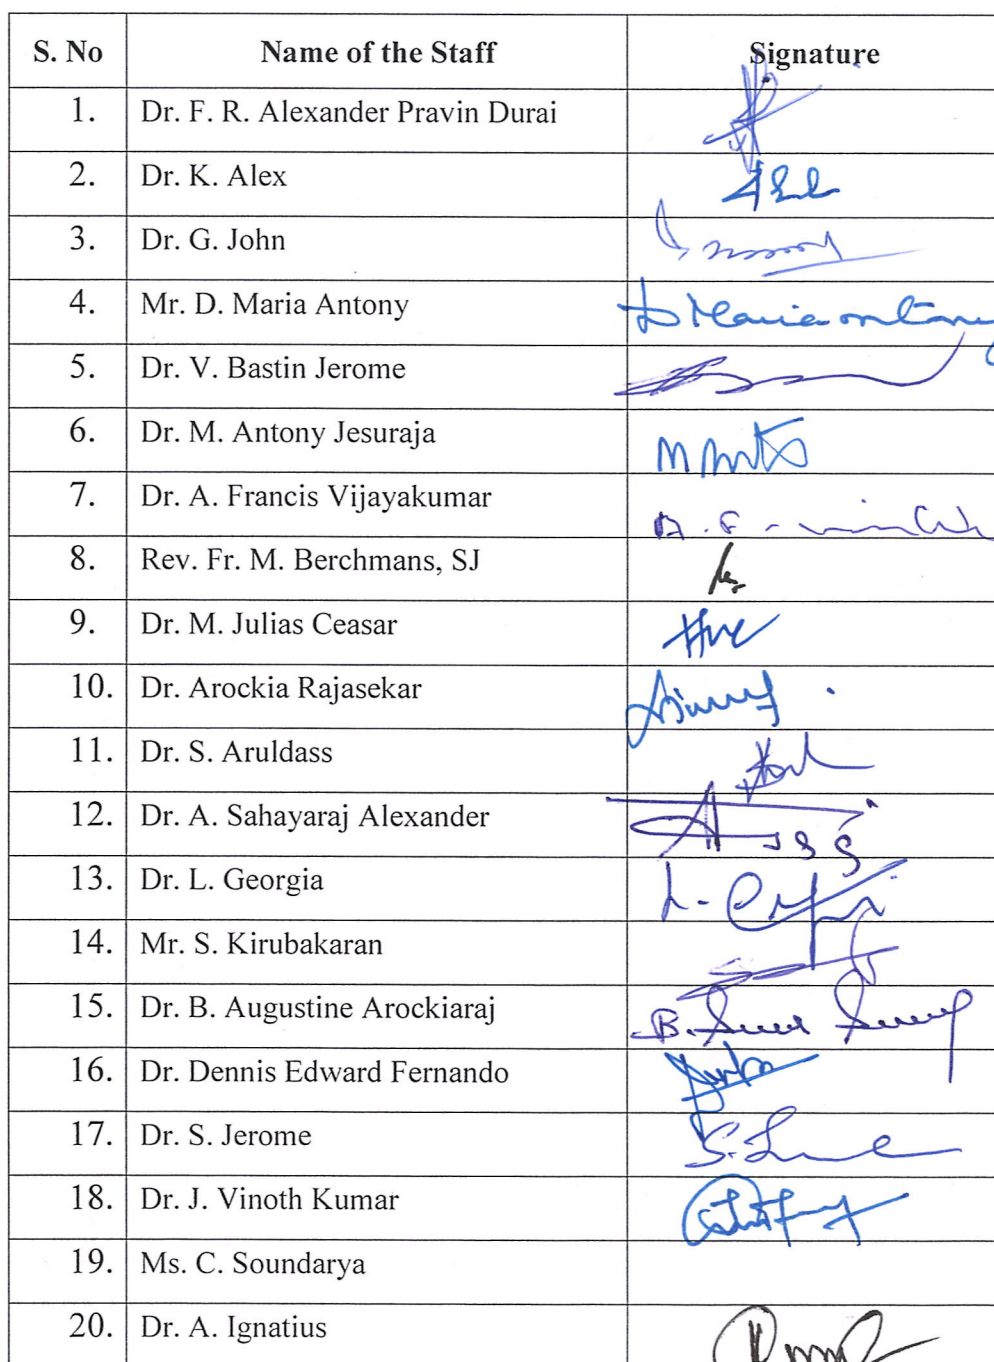 S. No Name of the Staff Signature
1. Dr. F. R. Alexander Pravin Durai
2. Dr. K. Alex
3. Dr. G. John
4. Mr. D. Maria Antony D Maria antony
5. Dr. V. Bastin Jerome
6. Dr. M. Antony Jesuraja
7. Dr. A. Francis Vijayakumar
8. Rev. Fr. M. Berchmans, SJ
9. Dr. M. Julias Ceasar
10. Dr. Arockia Rajasekar
11. Dr. S. Aruldass
12. Dr. A. Sahayaraj Alexander
13. Dr. L. Georgia
14. Mr. S. Kirubakaran
15. Dr. B. Augustine Arockiaraj
16. Dr. Dennis Edward Fernando
17. Dr. S. Jerome
18. Dr. J. Vinoth Kumar
19. Ms. C. Soundarya
20. Dr. A. Ignatius